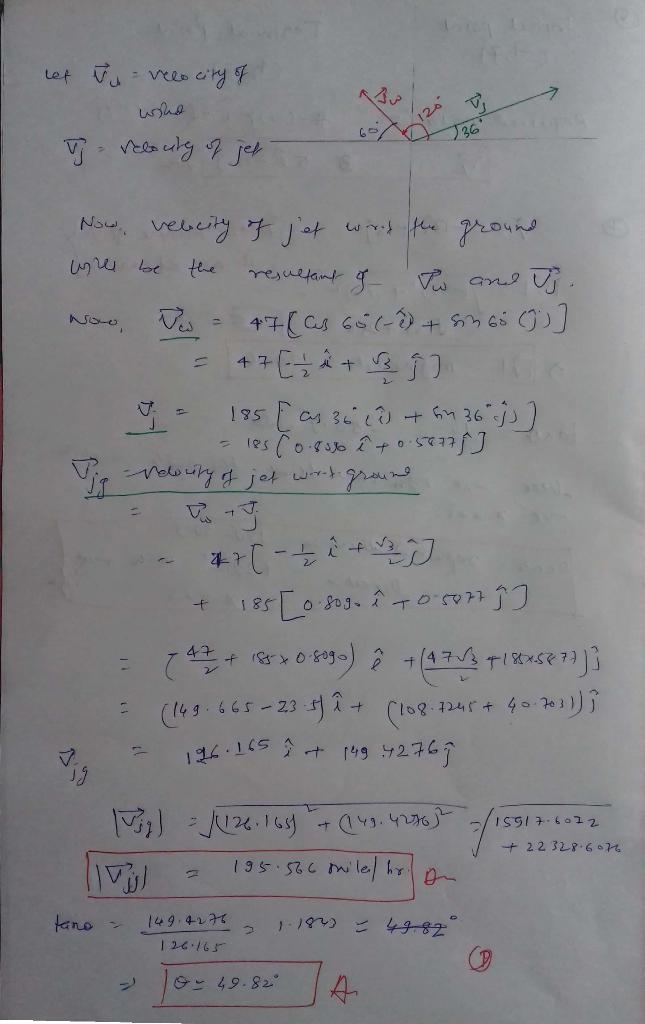 let V⃗w = velocity of
wind
V⃗j = velocity of jet
V⃗w 120° V⃗j
60° 36°
Now, velocity of jet w.r.t the ground
will be the resultant of V⃗w and V⃗j.
Now, V⃗w = 47[cos 60°(-î) + sin 60°(ĵ)]
= 47[-1/2 î + √3/2 ĵ]
V⃗j = 185[cos 36°(î) + sin 36° ĵ)]
= 185[0.8090 î + 0.5877 ĵ]
V⃗jg = velocity of jet w.r.t. ground
= V⃗w + V⃗j
= 47[-1/2 î + √3/2 ĵ]
+ 185[0.8090 î + 0.5877 ĵ]
= [-47/2 + 185x0.8090) î + (47√3/2 + 185x5877)] ĵ
= (149.665 - 23.5) î + (108.7245 + 40.703)) ĵ
V⃗jg = 126.165 î + 149.4276 ĵ
|V⃗jg| = √(126.165)² + (149.4276)² = √15917.6072
+ 22328.6076
|V⃗jg| = 195.566 mile/hr. A
tanθ = 149.4276/126.165 = 1.1843 = 49.82°
⇒ θ = 49.82° A